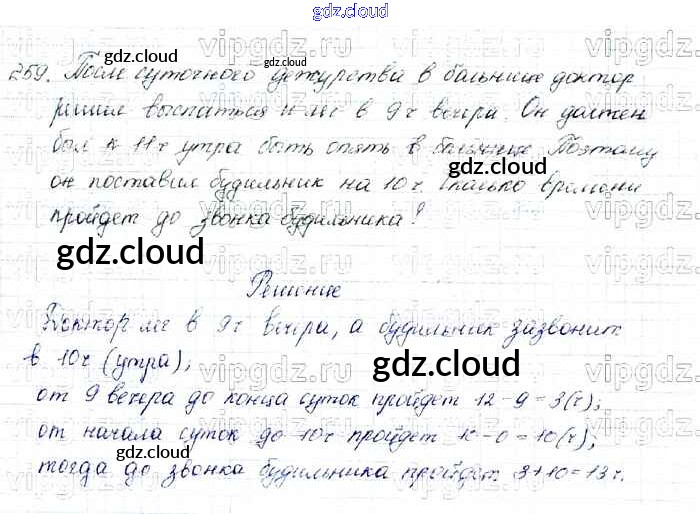 gdz.cloud
259. После суточного дежурства в больнице доктор
решил выспаться и лег в 9 ч вечера. Он должен
был к 11 ч утра быть опять в больнице. Поэтому
он поставил будильник на 10 ч. Сколько времени
пройдет до звонка будильника?
Решение
Доктор лег в 9 ч вечера, а будильник зазвонит
в 10 ч (утра);
от 9 вечера до конца суток пройдет 12 - 9 = 3 (ч);
от начала суток до 10 ч пройдет 10 - 0 = 10 (ч);
тогда до звонка будильника пройдет 3 + 10 = 13 ч.